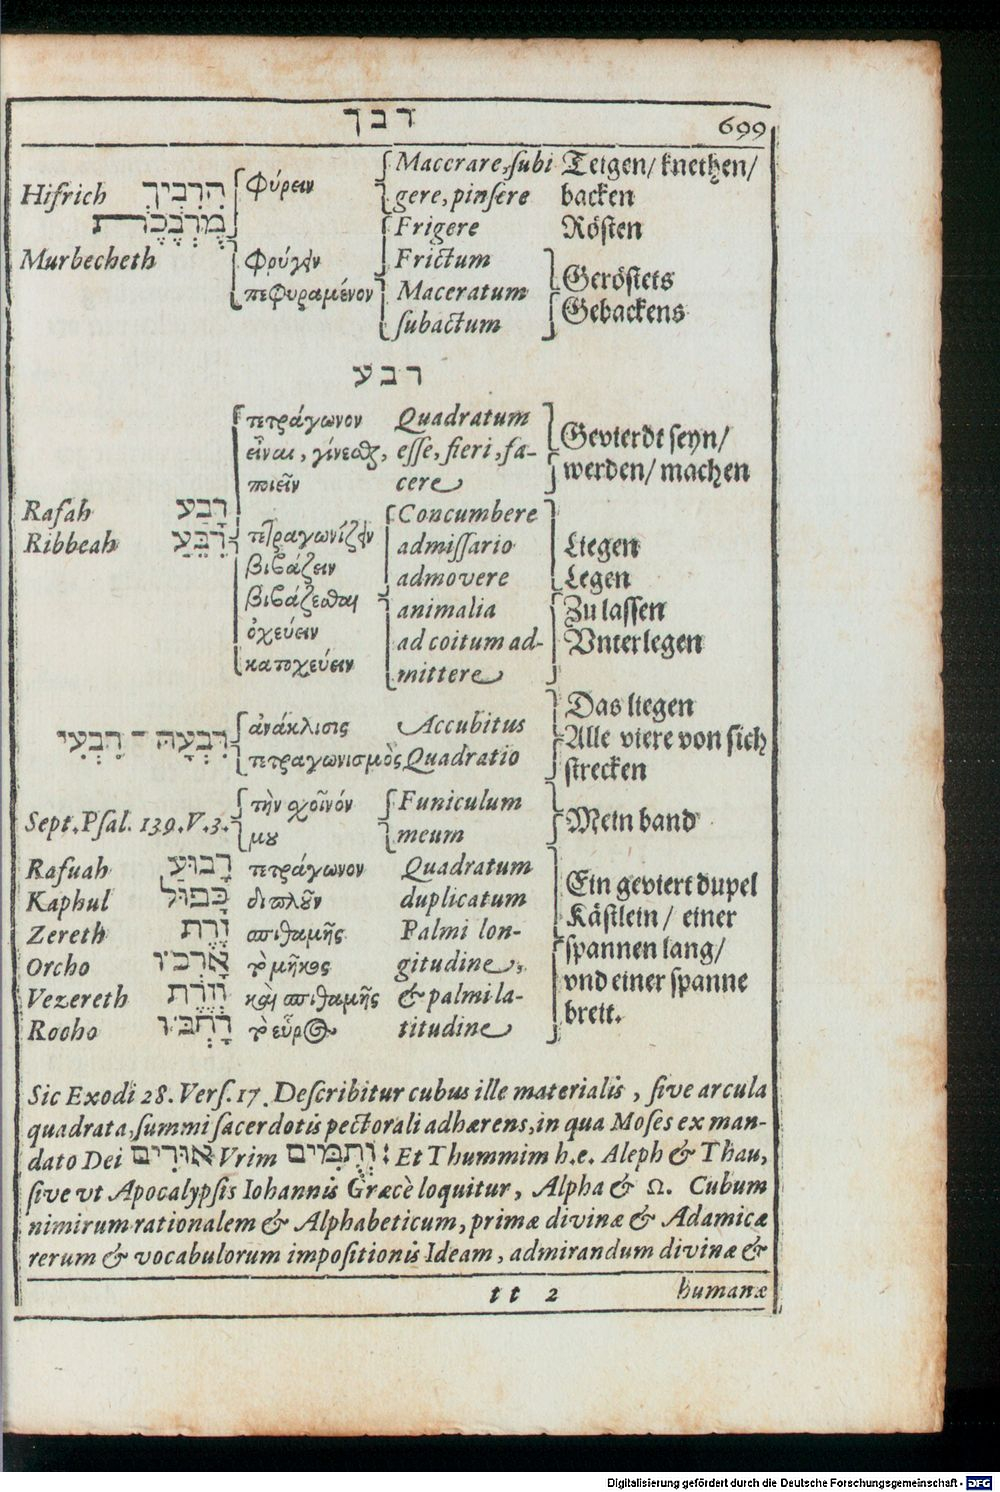 רבך
699
Hifrich הִרְבִיךְ φύρειν Macerare, ſubi Teigen/ knethen/
gere, pinſere backen
מֻרְבֶּכֶת Frigere Röſten
Murbecheth φρύγειν Frictum
πεφυραμένον Maceratum Geröſtets
ſubactum Gebackens
רבע
πετράγωνον Quadratum Gevierdt ſeyn/
εἶναι, γίνεσθαι, eſſe, fieri, fa-
ποιεῖν cere werden/ machen
Rafah רָבַע Concumbere
Ribbeah רִבֵּעַ τετραγωνίζειν admiſſario Liegen
βιβάζειν admovere Legen
βιβάζεσθαι animalia Zu laſſen
ὀχεύειν ad coitum ad- Vnterlegen
κατοχεύειν mittere
Das liegen
רִבְעָה - רִבְעִי ἀνάκλισις Accubitus Alle viere von ſich
πετραγωνισμὸς Quadratio ſtrecken
Sept. Pſal. 139. V. 3. τὴν σχοῖνόν Funiculum Mein band
μου meum
Rafuah רָבוּעַ πετράγωνον Quadratum Ein geviert dupel
Kaphul כָּפוּל διπλοῦν duplicatum Käſtlein/ einer
Zereth זֶרֶת σπιθαμῆς Palmi lon- ſpannen lang/
Orcho אָרְכּוֹ τὸ μῆκος gitudine, vnd einer ſpanne
Vezereth וְזֶרֶת καὶ σπιθαμῆς & palmi la-
Rocho רָחְבּוֹ τὸ εὖρος titudine breit.
Sic Exodi 28. Verſ. 17. Deſcribitur cubus ille materialis, ſive arcula
quadrata, ſummi ſacerdotis pectorali adhærens, in qua Moſes ex man-
dato Dei אוּרִים Vrim וְתֻמִּים: Et Thummim h.e. Aleph & Thau,
ſive vt Apocalypſis Iohannis Græcè loquitur, Alpha & Ω. Cubum
nimirum rationalem & Alphabeticum, primæ divinæ & Adamicæ
rerum & vocabulorum impoſitionis Ideam, admirandum divinæ &
tt 2 humanæ
Digitalisierung gefördert durch die Deutsche Forschungsgemeinschaft - DFG